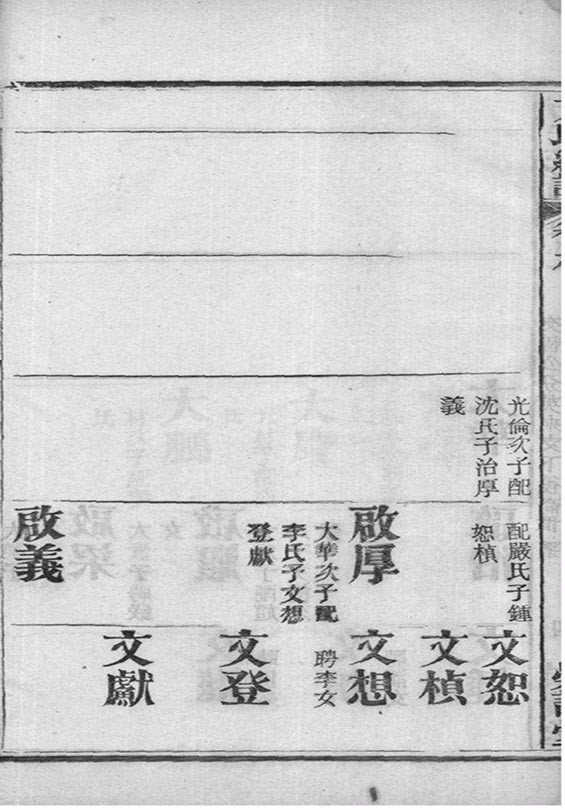 光倫次子配
沈氏子治厚
義
配嚴氏子鍾
恕楨
文恕
文楨
啟厚
大華次子配
李氏子文想
登獻
文想
聘李女
文登
文獻
啟義